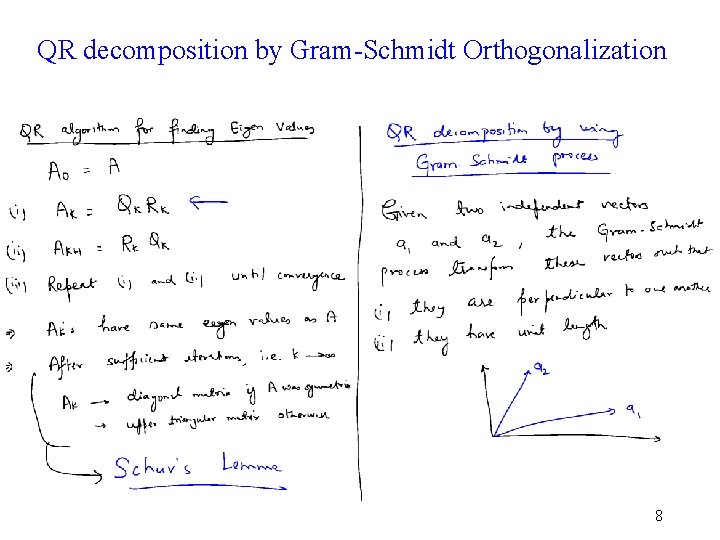 QR decomposition by Gram-Schmidt Orthogonalization
QR algorithm for finding Eigen Values
A₀ = A
(i) Aₖ = Qₖ Rₖ ←
(ii) Aₖ₊₁ = Rₖ Qₖ
(iii) Repeat (i) and (ii) until convergence
⇒ Aₖ's have same eigen values as A
⇒ After sufficient iterations, i.e. k → ∞
Aₖ → diagonal matrix if A was symmetric
→ upper triangular matrix otherwise
Schur's Lemma
QR decomposition by using
Gram-Schmidt process
Given two independent vectors
a₁ and a₂, the Gram-Schmidt
process transform these vectors such that
(i) they are perpendicular to one another
(ii) they have unit length
a₂
a₁
8